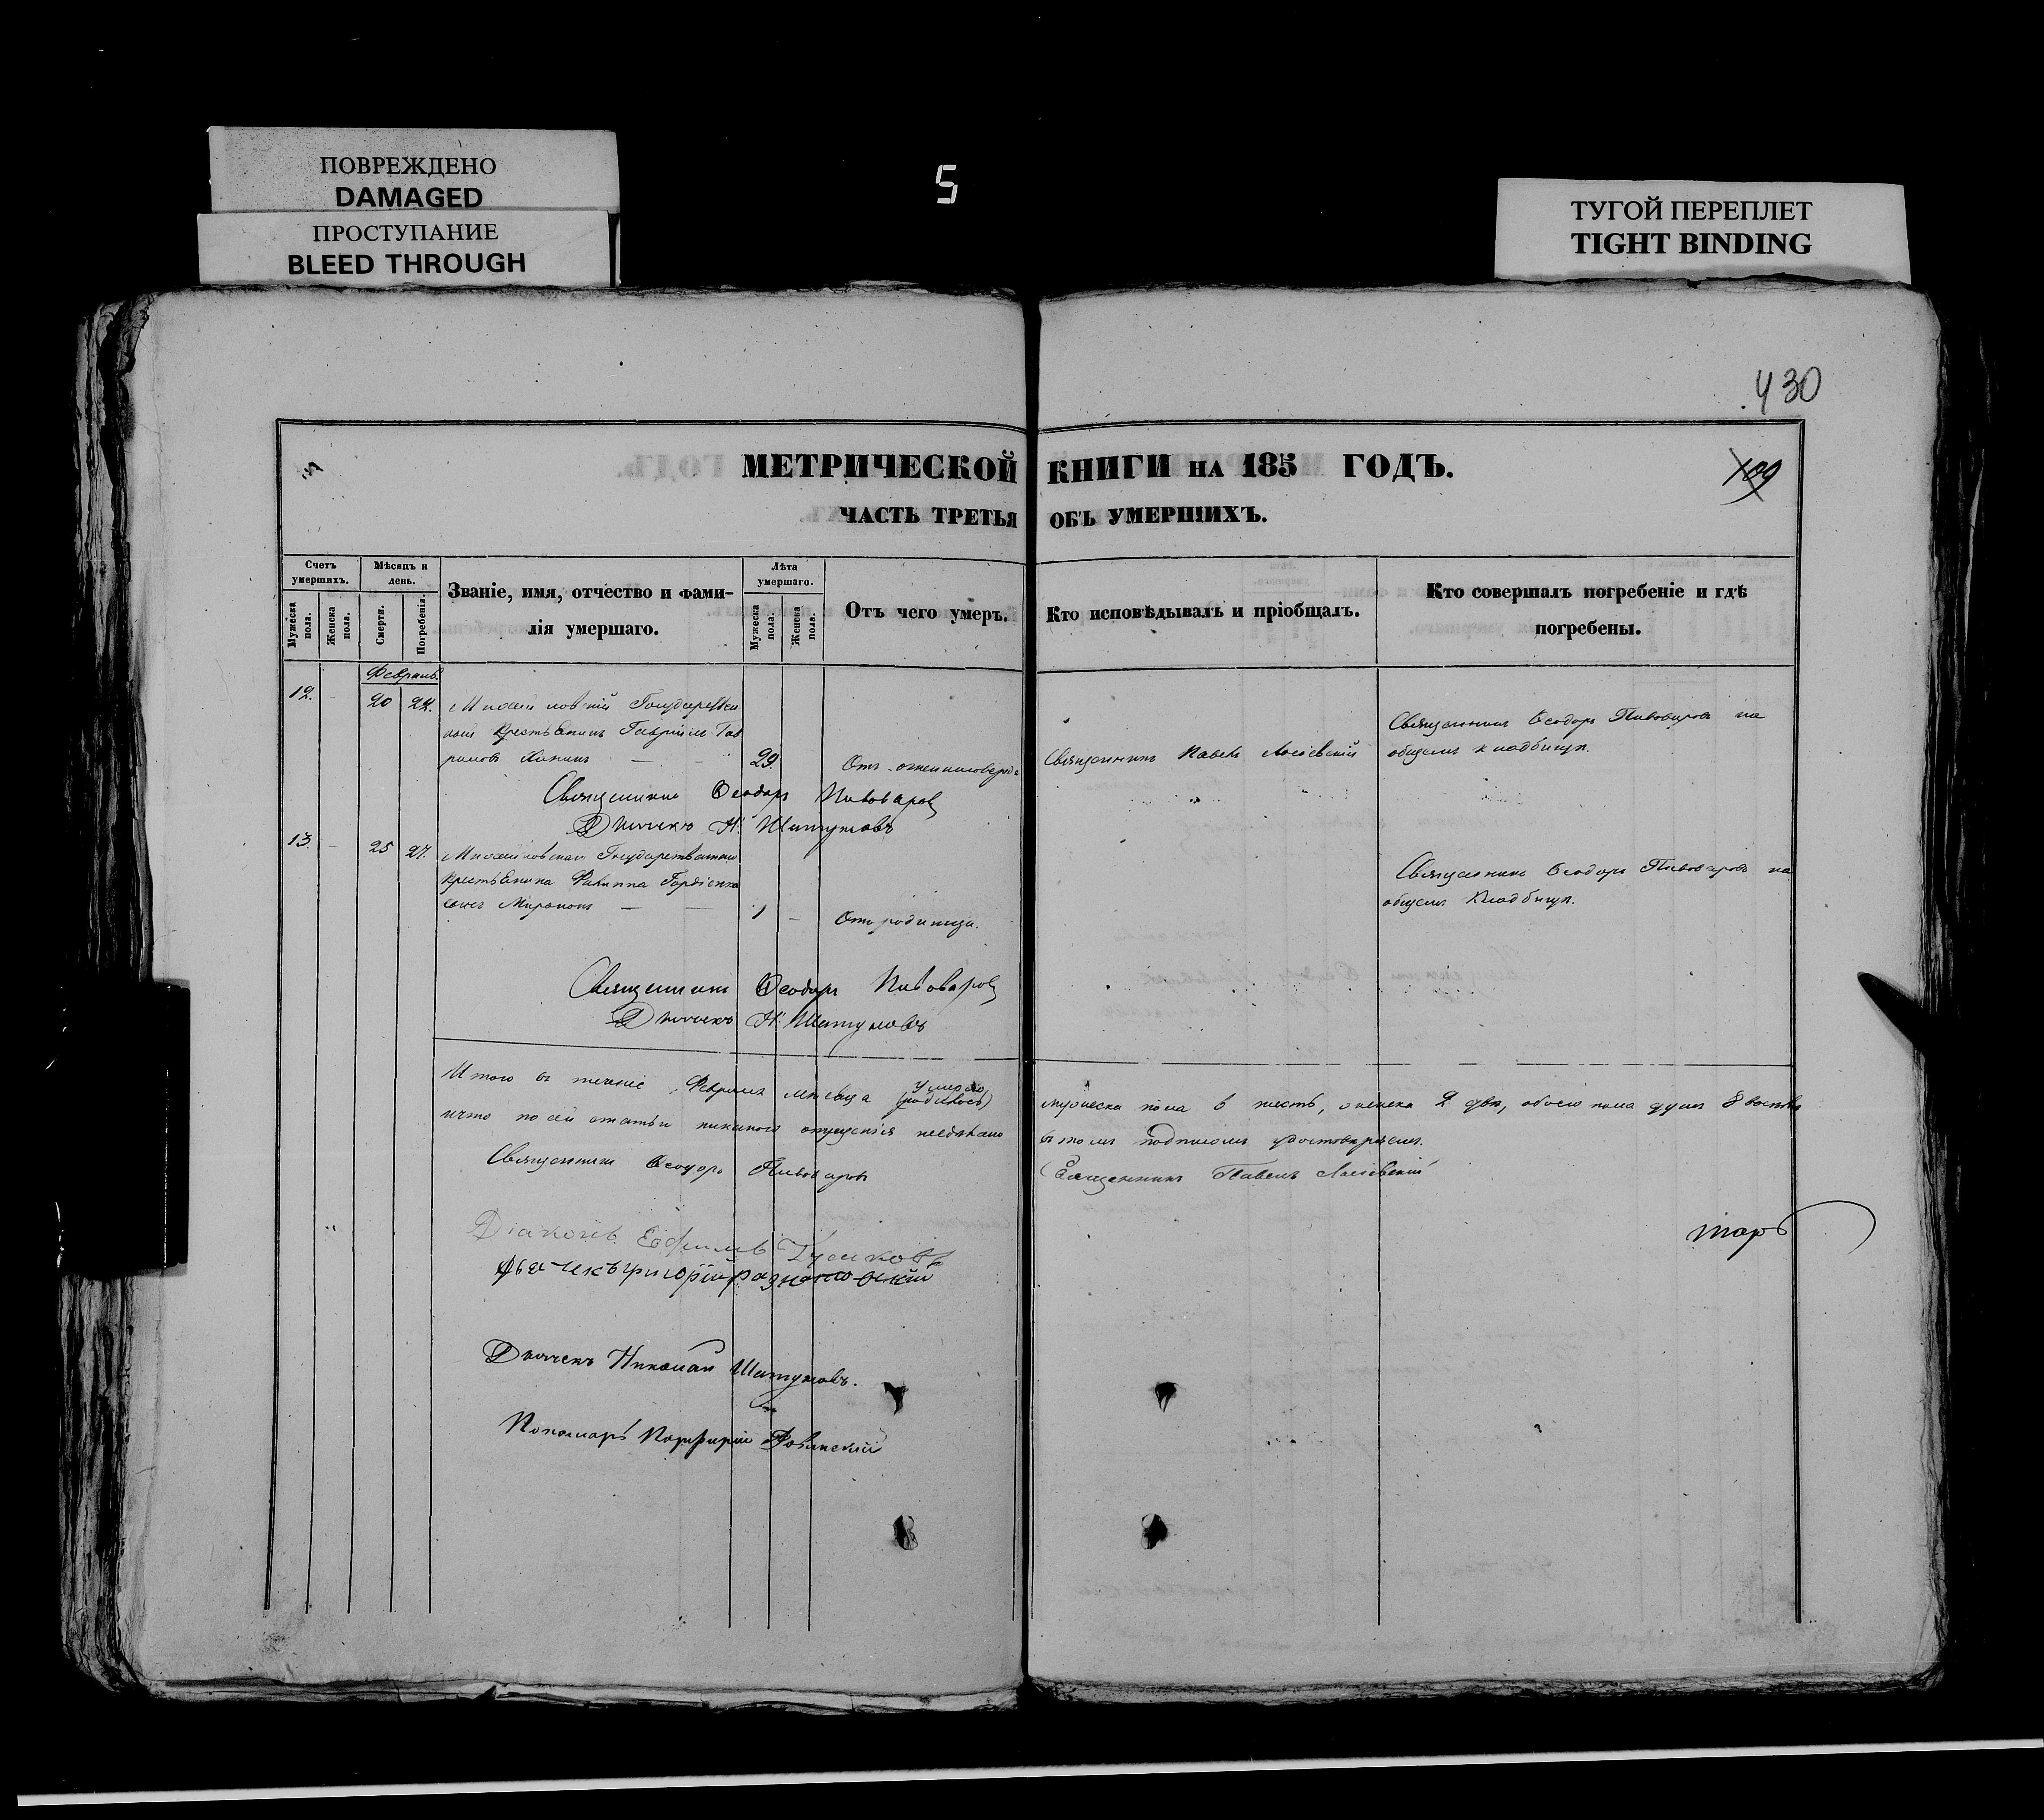 ПОВРЕЖДЕНО
DAMAGED
ПРОСТУПАНИЕ
BLEED THROUGH
5
ТУГОЙ ПЕРЕПЛЕТ
TIGHT BINDING
430
109
МЕТРИЧЕСКОЙ КНИГИ НА 185 ГОДЪ.
ЧАСТЬ ТРЕТЬЯ ОБЪ УМЕРШИХЪ.
Счетъ умершихъ.
Мужеска пола.
Женска пола.
Мѣсяцъ и день.
Смерти.
Погребенія.
Званіе, имя, отчество и фами-
лія умершаго.
Лѣта умершаго.
Мужеска пола.
Женска пола.
Отъ чего умеръ.
Кто исповѣдывалъ и пріобщалъ.
Кто совершалъ погребеніе и гдѣ
погребены.
Февраль
12. 20 22.
крестьянинъ Гавріилъ Гав
риловъ 29.
Священникъ Павелъ
Священникъ Ѳеодоръ Пивоваровъ на
общемъ кладбищѣ.
Священникъ Ѳеодоръ Пивоваровъ
Дьячекъ Н. Шатуновъ
13. 25 27. Государственнаго
крестьянина Филиппа Гордіенка
сынъ Миронъ 1 Отъ родимца.
Священникъ Ѳеодоръ Пивоваровъ на
общемъ кладбищѣ.
Священникъ Ѳеодоръ Пивоваровъ
Дьячекъ Н. Шатуновъ
Итого въ теченіе Февраля мѣсяца (родилось) умерло мужеска пола 6 шесть, женска 2 два, обоего пола душъ 8 восемь
и что по сей статьи никакого опущенія несдѣлано въ томъ подписомъ удостовѣряемъ.
Священникъ Ѳеодоръ Пивоваровъ
Священникъ Павелъ
Діаконъ Ефимъ
Дьячекъ Григорій
Дьячекъ Николай Шатуновъ.
Пономарь Порфирій
таръ